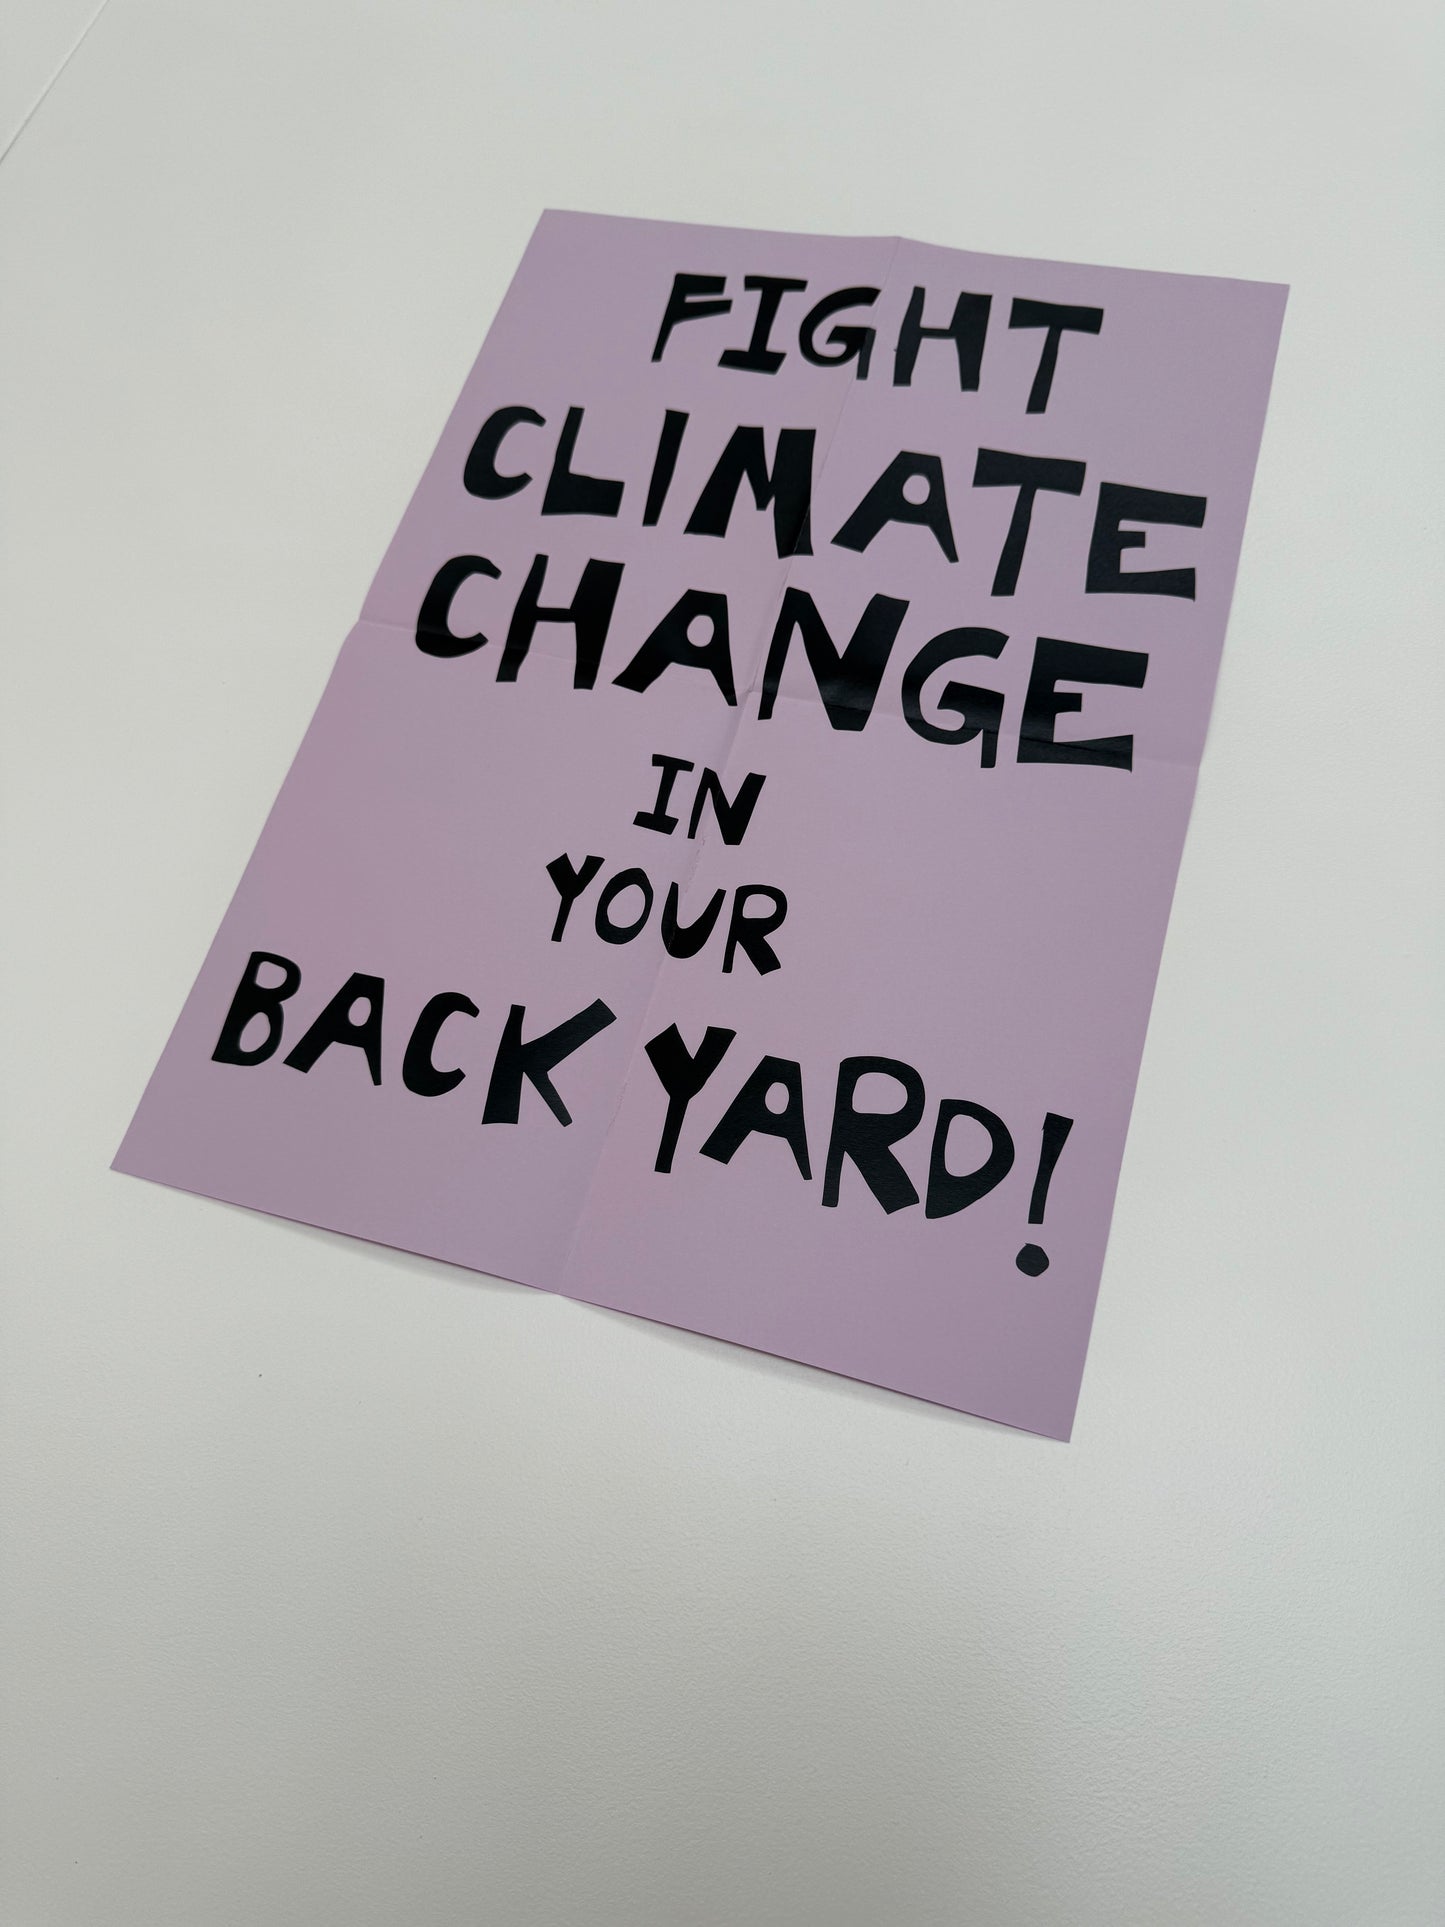 FIGHT
CLIMATE
CHANGE
IN
YOUR
BACK YARD!